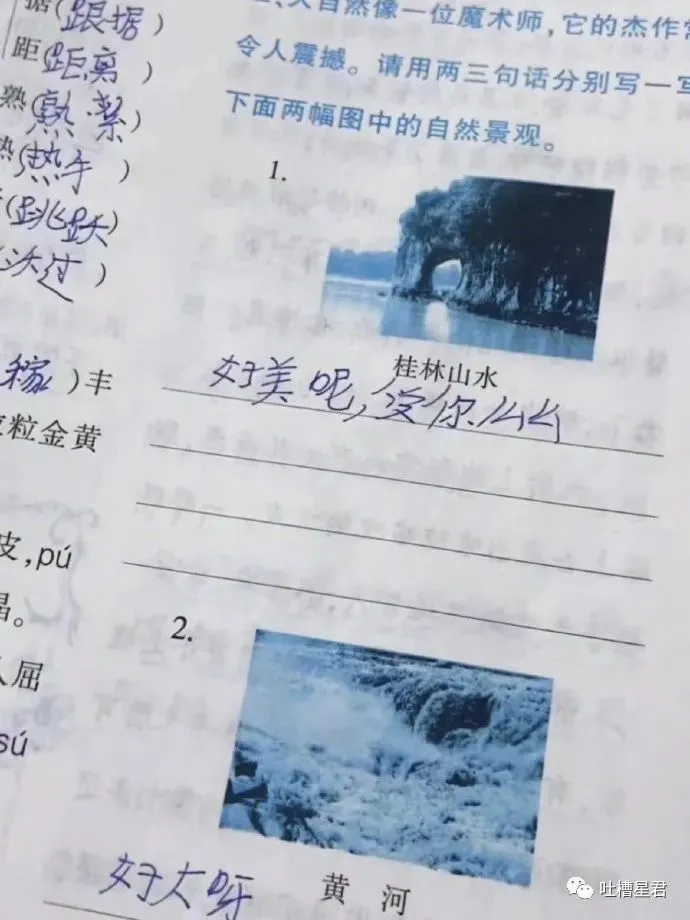 据(跟据)
距(距离)
熟(熟
热(热手)
(跳跃)
过)
稼)丰
粒金黄
皮,pú
晶。
屈
sú
大自然像一位魔术师,它的杰作常
令人震撼。请用两三句话分别写一写
下面两幅图中的自然景观。
1.
桂林山水
好美呢,爱你么么
2.
黄河
好大呀
吐槽星君